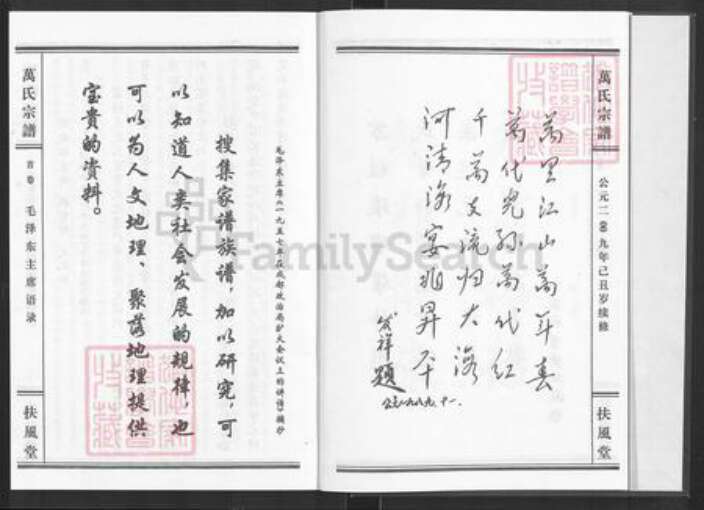 萬氏宗譜
公元二〇〇九年己丑岁续修
扶風堂
萬里江山萬年春
萬代児孙萬代红
千萬支流归大海
河清海宴兆昇平
发祥题
萬氏宗譜
首卷
毛泽东主席语录
扶風堂
搜集家谱族谱，加以研究，可
以知道人类社会发展的规律，也
可以为人文地理、聚落地理提供
宝贵的资料。
毛泽东主席《一九五七年在成都政治局扩大会议上的讲话》摘抄
FamilySearch